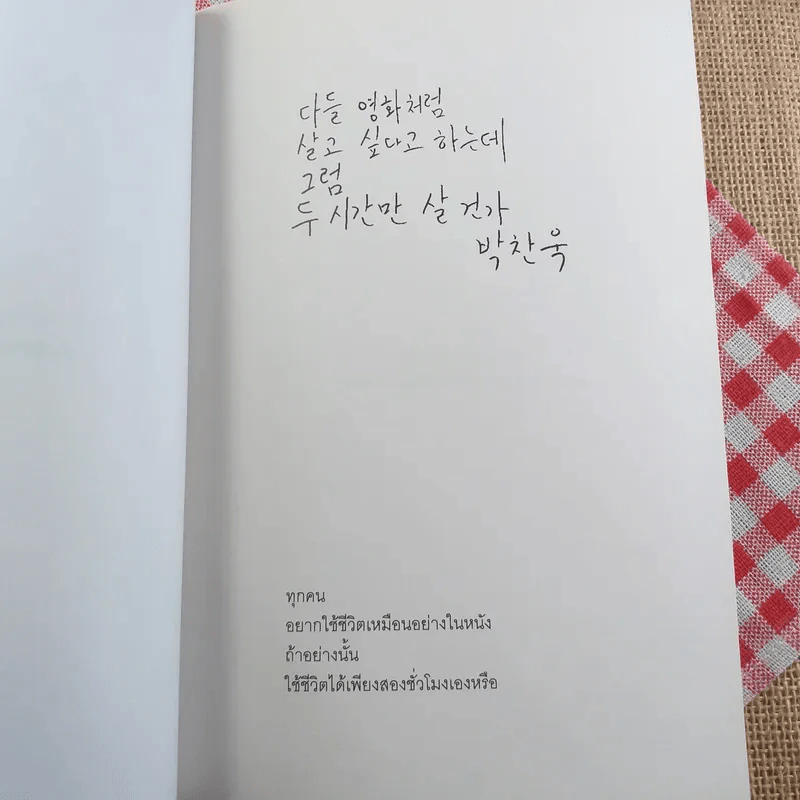 다들 영화처럼
살고 싶다고 하는데
그럼
두 시간만 살 건가
박찬욱
ทุกคน
อยากใช้ชีวิตเหมือนอย่างในหนัง
ถ้าอย่างนั้น
ใช้ชีวิตได้เพียงสองชั่วโมงเองหรือ